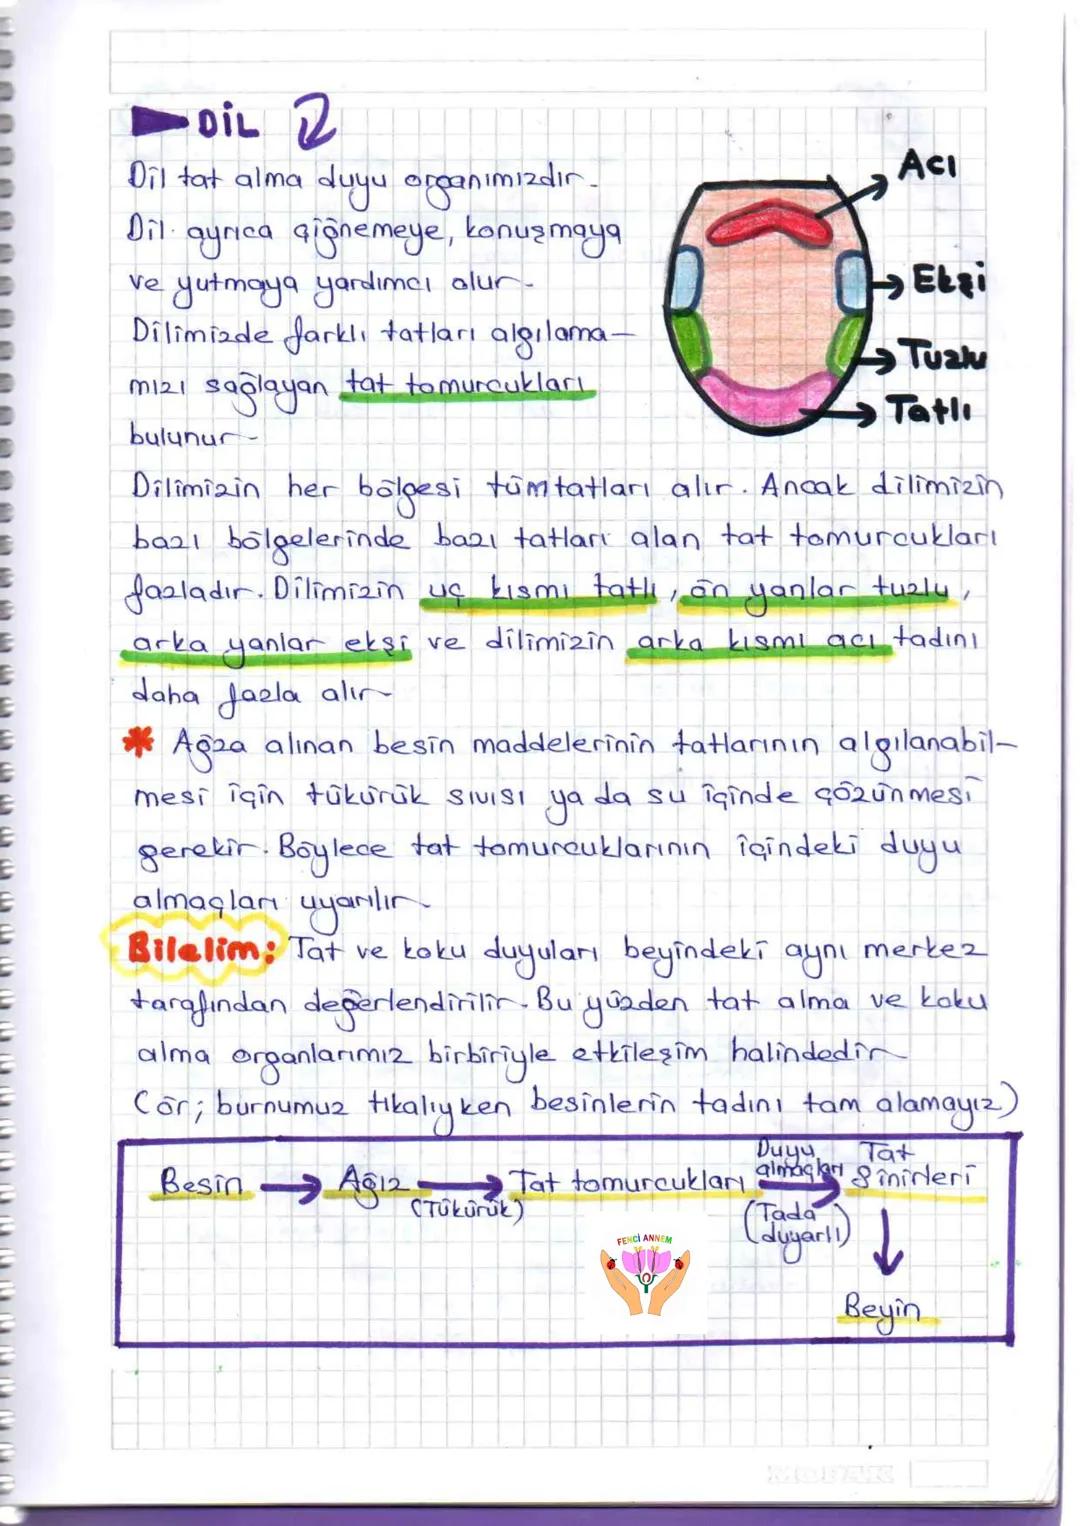 DİL
Dil tat alma duyu organımızdır.
Dil ayrıca çiğnemeye, konuşmaya
ve yutmaya yardımcı olur.
Dilimizde farklı tatları algılama-
mızı sağlayan tat tomurcukları
bulunur.
Acı
Ekşi
Tuzlu
Tatlı
Dilimizin her bölgesi tüm tatları alır. Ancak dilimizin
bazı bölgelerinde bazı tatları alan tat tomurcukları
fazladır. Dilimizin uç kısmı tatlı, ön yanlar tuzlu,
arka yanlar ekşi ve dilimizin arka kısmı acı tadını
daha fazla alır.
* Ağza alınan besin maddelerinin tatlarının algılanabil-
mesi için tükürük sıvısı ya da su içinde çözünmesi
gerekir. Böylece tat tomurcuklarının içindeki duyu
almaçları uyarılır.
Bilelim: Tat ve koku duyuları beyindeki aynı merkez
tarafından değerlendirilir. Bu yüzden tat alma ve koku
alma organlarımız birbiriyle etkileşim halindedir
(ör; burnumuz tıkalıyken besinlerin tadını tam alamayız)
Besin → Ağız → Tat tomurcukları → Tat Sinirleri
(Tükürük)
Duyu almaçları
(Tada duyarlı)
↓
Beyin
FENCİ ANNEM
MOPAK